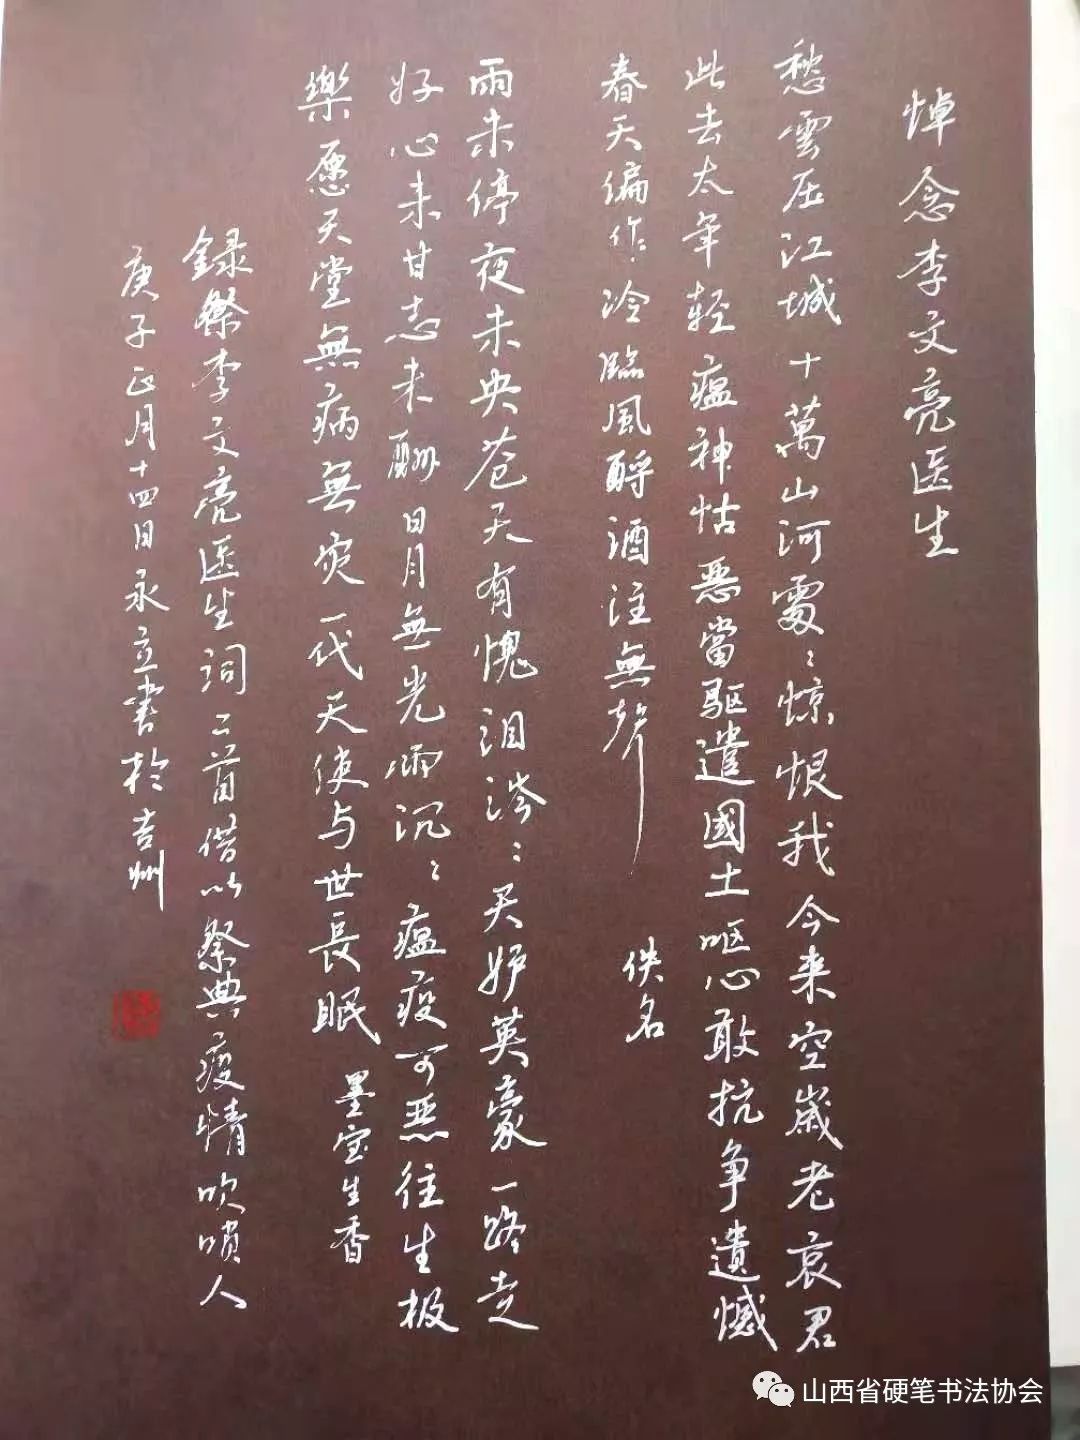 悼念李文亮医生
愁雲压江城十萬山河處〻惊恨我今来空歲老哀君
此去太年轻瘟神怙恶當驱遣國土呕心敢抗争遺憾
春天偏作冷臨風酹酒注無聲
佚名
雨未停夜未央苍天有愧泪涔〻天妒英豪一路走
好心未甘志未酬日月無光雨沉〻瘟疫可恶往生极
樂愿天堂無病無灾一代天使与世長眠
墨宝生香
録祭李文亮医生词二首借以祭典疫情吹哨人
庚子正月十四日永立書於吉州
山西省硬笔书法协会